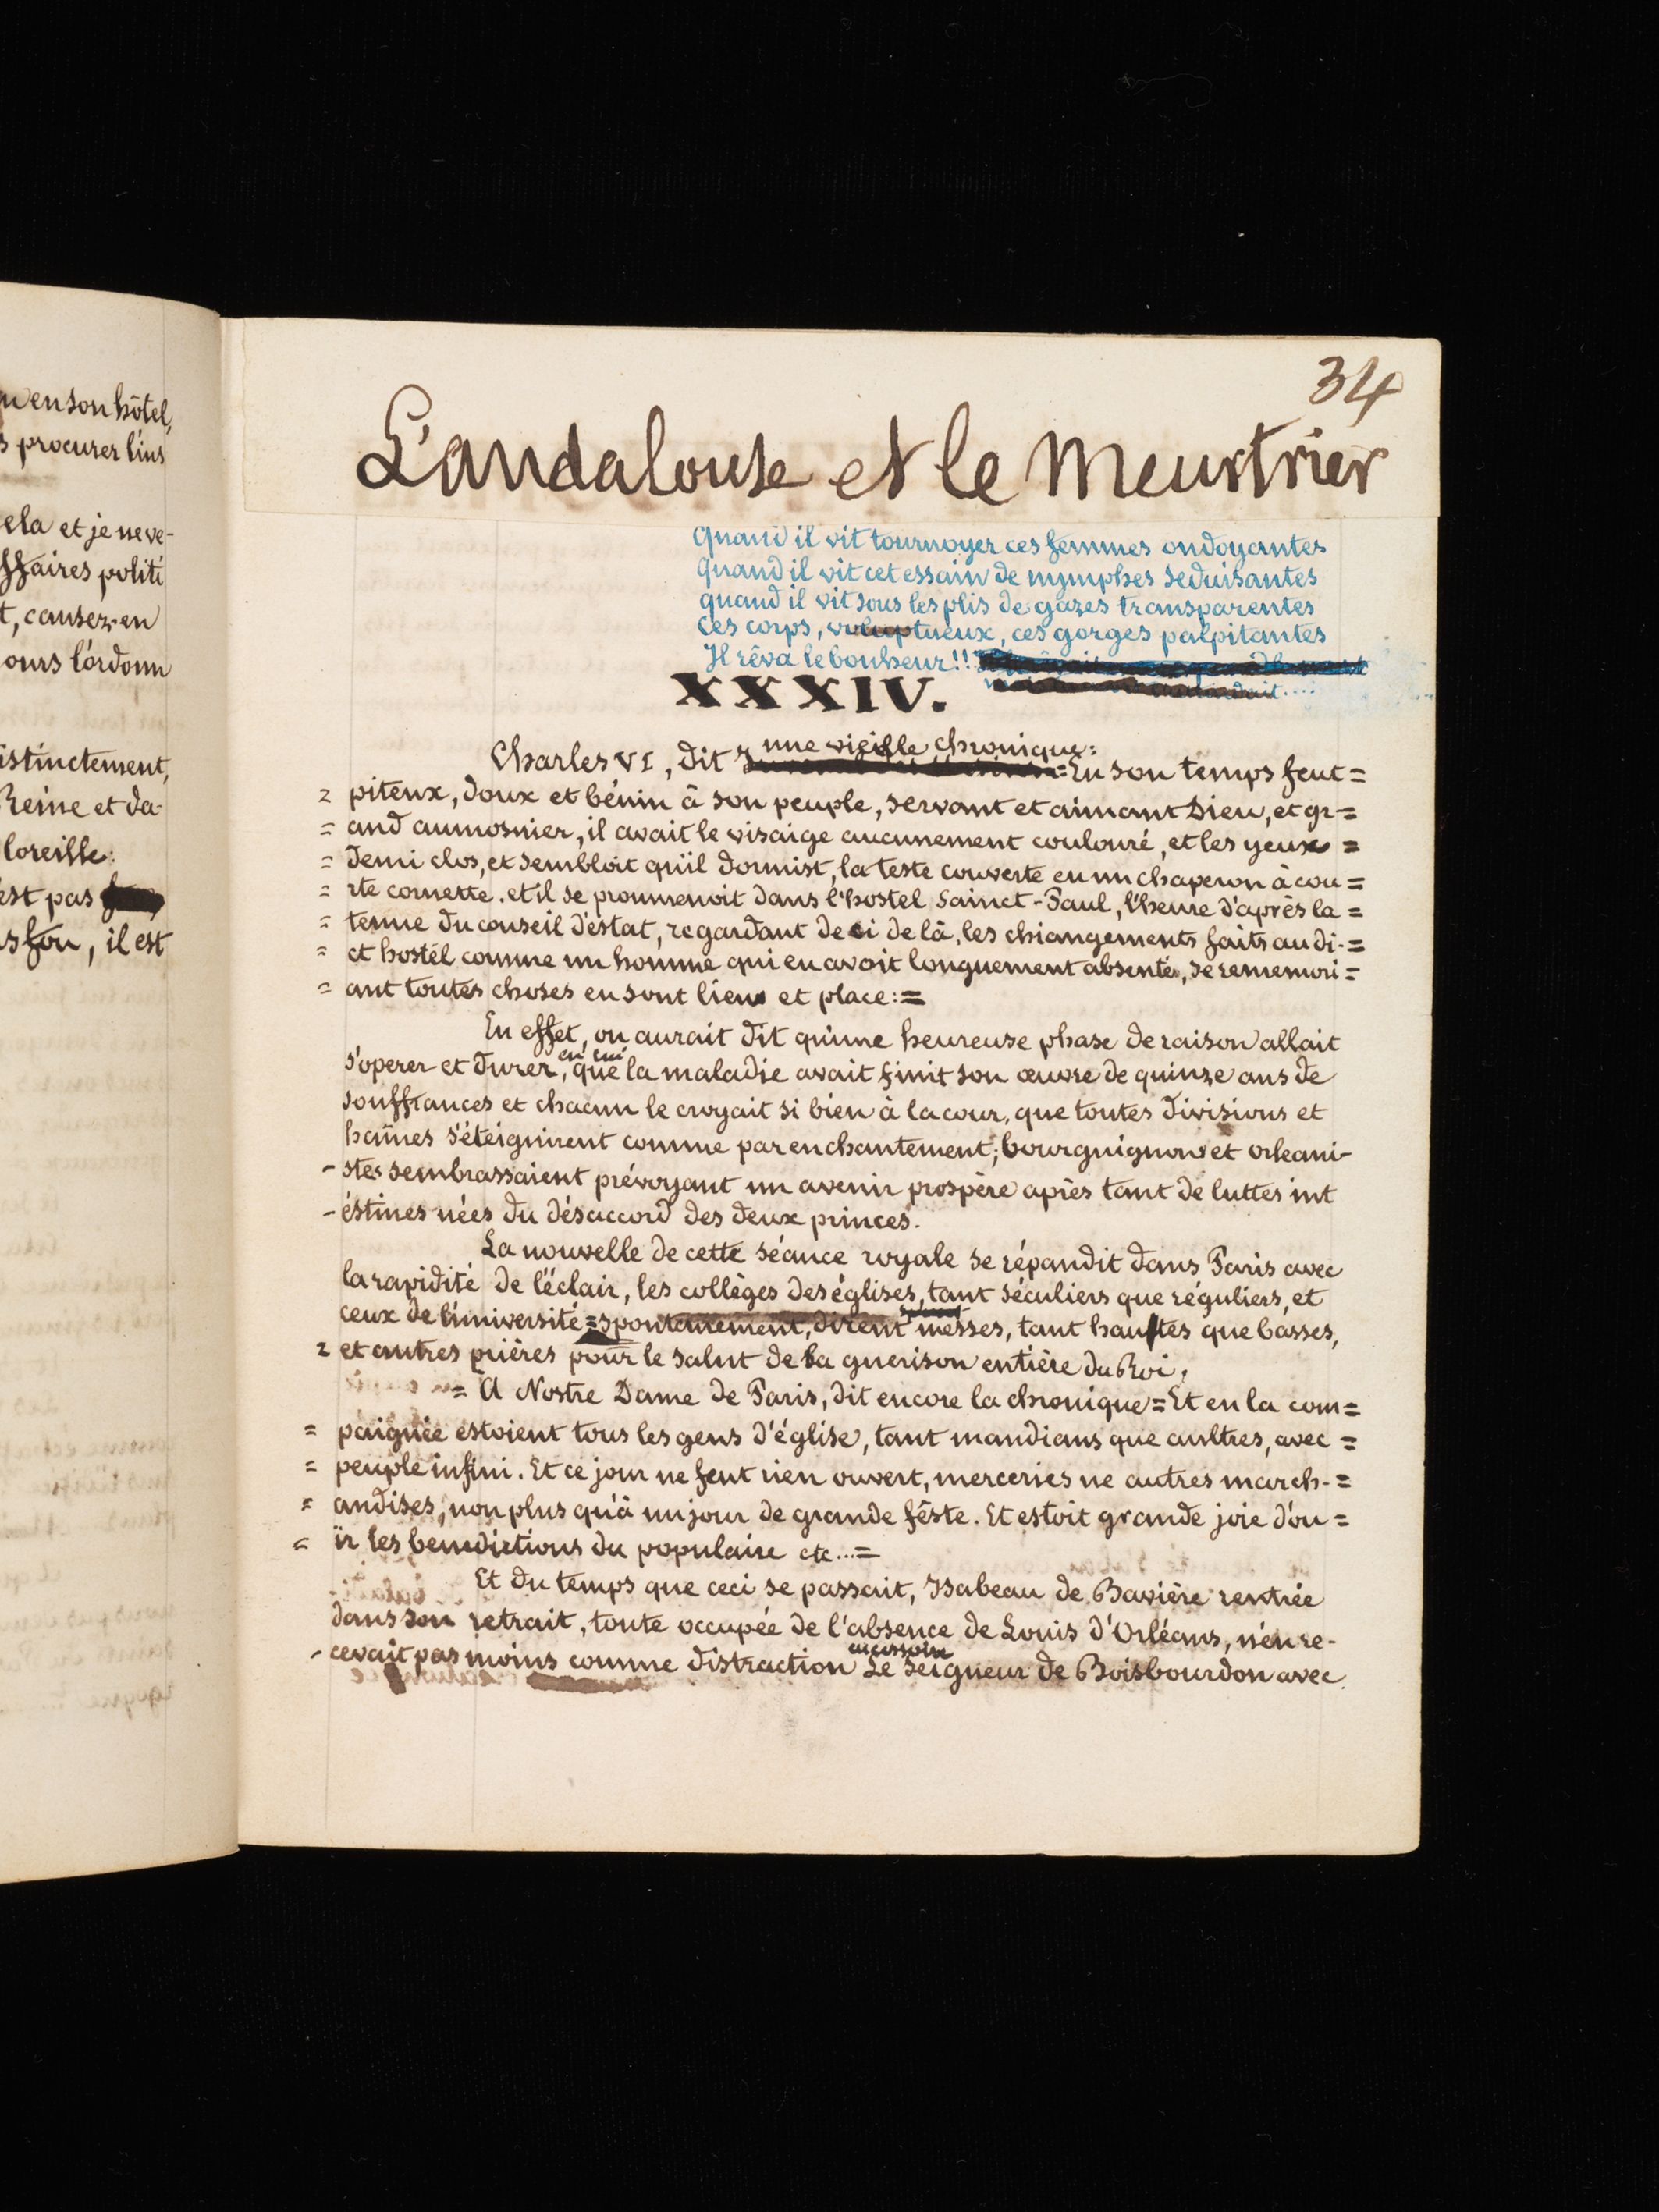 u en son hôtel,
s procurer l'ins
ela et je ne ve-
ffaires politi
t, causez-en
ours l'ordonn
istinctement,
Reine et da-
l'oreille:
est pas
s fou, il est
34
L'andalouse et le Meurtrier
Quand il vit tournoyer ces femmes ondoyantes
Quand il vit cet essain de nymphes seduisantes
quand il vit sous les plis de gazes transparentes
Ces corps, voluptueux, ces gorges palpitantes
Il rêva le bonheur!!
XXXIV.
une vieille chronique:
Charles VI, dit =En son temps feut=
= piteux, doux et bénin à son peuple, servant et aimant Dieu, et gr-=
= and aumosnier, il avait le visaige aucunement coulouré, et les yeux =
= demi clos, et sembloit qu'il dormist, la teste couverte en un chaperon à cou=
= rte cornette. et il se proumenoit dans l'hostel Sainct-Paul, l'heure d'après la =
= tenue du conseil d'estat, regardant de ci de là, les chiangements faits au di-=
= ct hostel comme un homme qui en avoit longuement absenté, se rememori=
= ant toutes choses en sont lieu et place:=
En effet, on aurait dit qu'une heureuse phase de raison allait
en lui
s'operer et durer, que la maladie avait finit son œuvre de quinze ans de
souffrances et chacun le croyait si bien à la cour, que toutes divisions et
haines s'éteignirent comme par enchantement; bourguignons et orleani-
-stes sembrassaient prévoyant un avenir prospère après tant de luttes int
-éstines nées du désaccord des deux princes.
La nouvelle de cette séance royale se répandit dans Paris avec
la rapidité de l'éclair, les collèges des églises, tant séculiers que réguliers, et
ceux de l'université=spontenement, dirent messes, tant hautes que basses,
= et autres prières pour le salut de la guerison entière du Roi.
= A Nostre Dame de Paris, dit encore la chronique=Et en la com=
= paignie estoient tous les gens d'église, tant mandians que aultres, avec =
= peuple infini. Et ce jour ne feut rien ouvert, merceries ne autres march-=
= andises, non plus qu'à un jour de grande féste. Et estoit grande joie d'ou=
= ïr les benedictions du populaire etc...=
Et du temps que ceci se passait, Isabeau de Bavière rentrée
dans son retrait, toute occupée de l'absence de Louis d'Orléans, n'en re-
-cevait pas moins comme distraction Le Seigneur de Boisbourdon avec